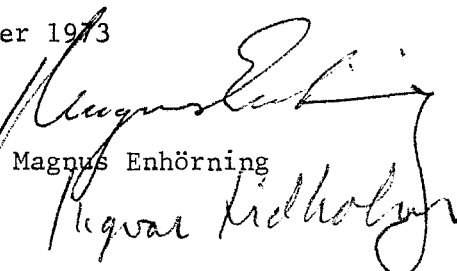 er 1973
Magnus Enhörning
Magnus Enhörning
Ingvar Lidholm